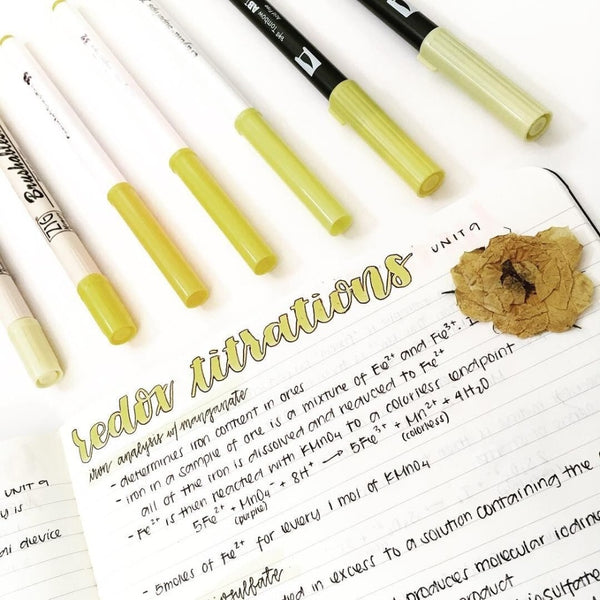 ZIG Brushables
Tombow ABT
UNIT 9
redox titrations
iron analysis w/ manganate
- determines iron content in ores
- iron in a sample of ore is a mixture of Fe²⁺ and Fe³⁺. I
all of the iron is dissolved and reduced to Fe²⁺
- Fe²⁺ is then reacted with KMnO₄ to a colorless endpoint
5Fe²⁺ + MnO₄⁻ + 8H⁺ → 5Fe³⁺ + Mn²⁺ + 4H₂O
(purple) (colorless)
- 5 moles of Fe²⁺ for every 1 mol of KMnO₄
in excess to a solution containing the
produces molecular iodine
product
UNIT 9
y is
device